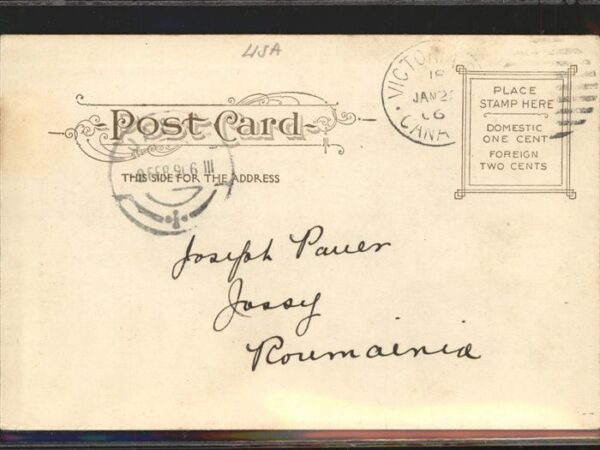 USA
VICTORIA
JAN 2
06
CANA
PLACE
STAMP HERE
DOMESTIC
ONE CENT
FOREIGN
TWO CENTS
Post Card
THIS SIDE FOR THE ADDRESS
Joseph Pauer
Jassy
Roumainia